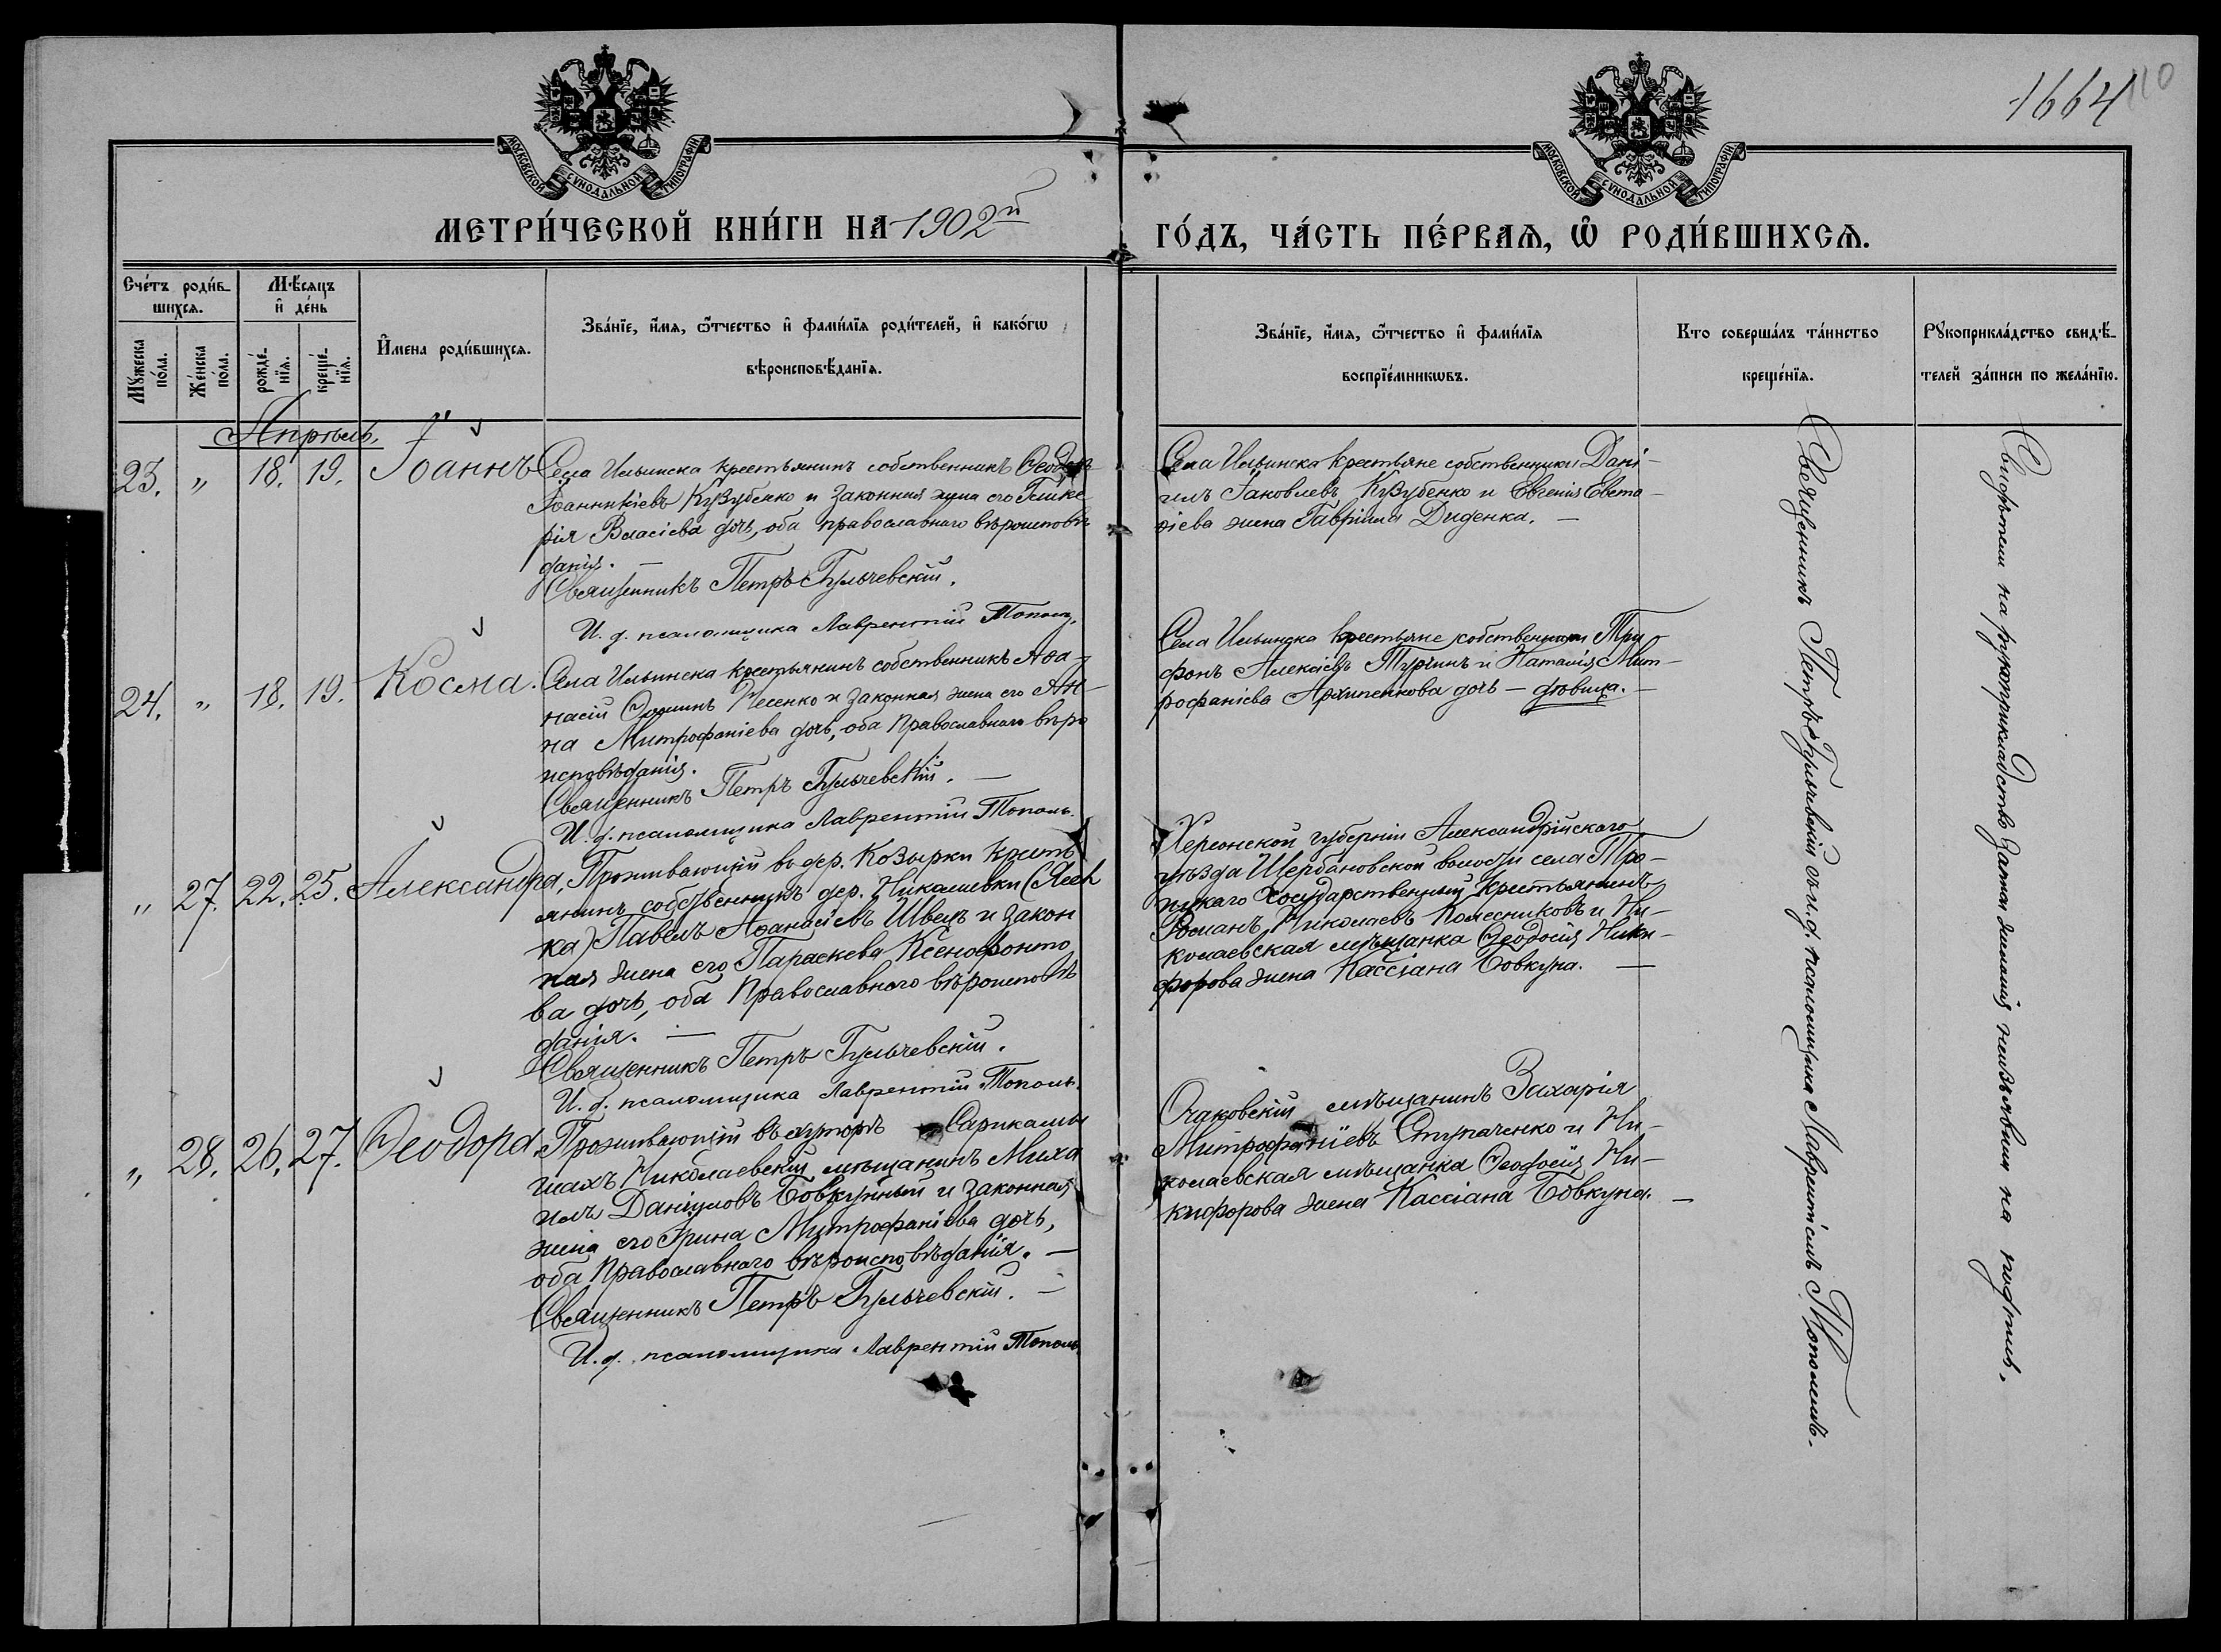 1664
110
МОСКОВСКОЙ СѴНОДАЛЬНОЙ ТИПОГРАФІИ
МОСКОВСКОЙ СѴНОДАЛЬНОЙ ТИПОГРАФІИ
МЕТРИ́ЧЕСКОЙ КНИ́ГИ НА 1902й
ГО́ДЪ, ЧА́СТЬ ПЕ́РВАѦ, Ѽ РОДИ́ВШИХСѦ.
Сче́тъ роди́в-
шихсѧ.
Мѣ́сѧцъ
и҆ де́нь
Мꙋ́жеска
по́ла.
Же́нска
по́ла.
рожде́-
нїѧ.
креще́-
нїѧ.
И҆мена роди́вшихсѧ.
Зва́нїе, и҆́мѧ, ѻ҆́тчество и҆ фами́лїѧ роди́телей, и҆ како́гѡ
вѣроисповѣ́данїѧ.
Зва́нїе, и҆́мѧ, ѻ҆́тчество и҆ фами́лїѧ
воспрїе́мникѡвъ.
Кто соверша́лъ та́инство
креще́нїѧ.
Рꙋкоприкла́дство свидѣ́-
телей за́писи по жела́нїю.
Апрѣль.
23. " 18. 19. Іоаннъ
Села Ильинска крестьянинъ собственникъ
Іоанникіевъ Кузубенко и законная жена его Глике
рія Власіева дочь, оба православнаго вѣроисповѣ
данія. —
Священникъ Петръ Гульчевскій.
И. д. псаломщика Лаврентій Тополь.
Села Ильинска крестьяне собственники Дані-
илъ Іаковлевъ Кузубенко и Евгенія Евста-
фіева жена Гавріила Диденка. —
24. " 18. 19. Косма.
Села Ильинска крестьянинъ собственникъ Аѳа-
насій Песенко и законная жена его Ан-
на Митрофаніева дочь, оба Православнаго вѣро
исповѣданія.
Священникъ Петръ Гульчевскій. —
И. д. псаломщика Лаврентій Тополь.
Села Ильинска крестьяне собственники Три
фонъ Алексіевъ Турчинъ и Наталія Мит-
рофаніева Архипенкова дочь — дѣвица. —
" 27. 22. 25. Александра.
Проживающій въ дер. Козырки кресть
янинъ собственникъ дер. Николаевки (Песк
ка) Павелъ Аѳанасіевъ Швецъ и закон
ная жена его Параскева Ксенофонто
ва дочь, оба Православнаго вѣроисповѣ
данія. —
Священникъ Петръ Гульчевскій.
И. д. псаломщика Лаврентій Тополь.
Херсонской губерніи Александрійскаго
уѣзда Щербановской волости села Тро-
ицкаго Государственный крестьянинъ
Романъ Николаевъ Колесниковъ и Ни-
колаевская мѣщанка Ѳеодосія Ники-
форова жена Кассіана Бовкуна. —
" 28. 26. 27. Ѳеодора
Проживающій въ хуторѣ Сарикамы
шахъ Николаевскій мѣщанинъ Миха
илъ Даніиловъ Бовкунный и законная
жена его Ирина Митрофаніева дочь,
оба Православнаго вѣроисповѣданія. —
Священникъ Петръ Гульчевскій. —
И. д. псаломщика Лаврентій Тополь.
Очаковскій мѣщанинъ Захарія
Митрофаніевъ Ступаченко и Ни-
колаевская мѣщанка Ѳеодосія Ни-
кифорова жена Кассіана Бовкуна. —
Священникъ Петръ Гульчевскій съ и. д. псаломщика Лаврентіемъ Тополемъ.
Свидѣтели на рукоприкладство записи желанія не изъявили на подпись.